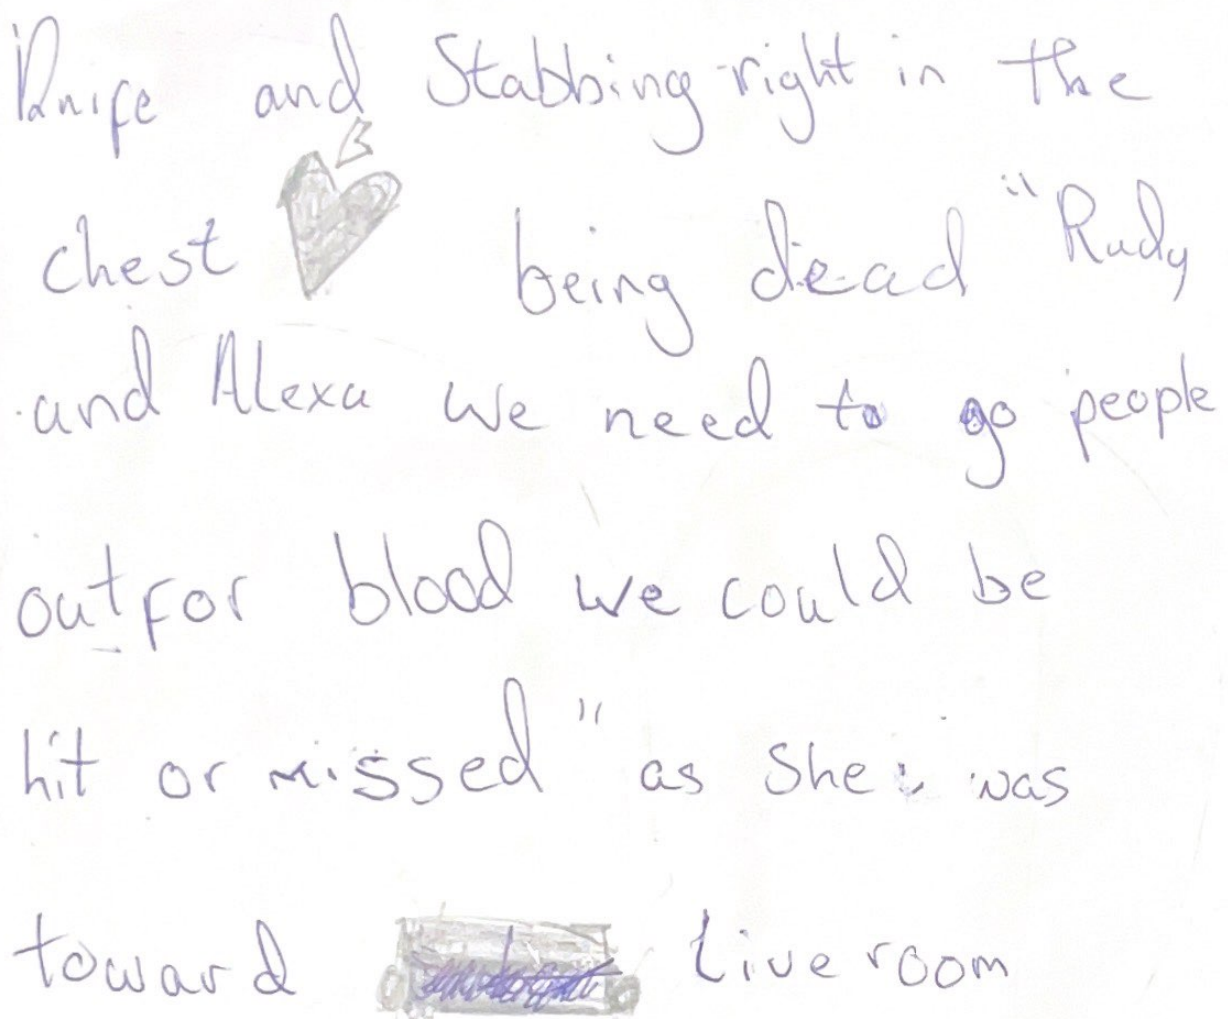 Knife and Stabbing right in the
chest being dead "Rudy
and Alexa we need to go people
out for blood we could be
hit or missed" as She was
toward Live room